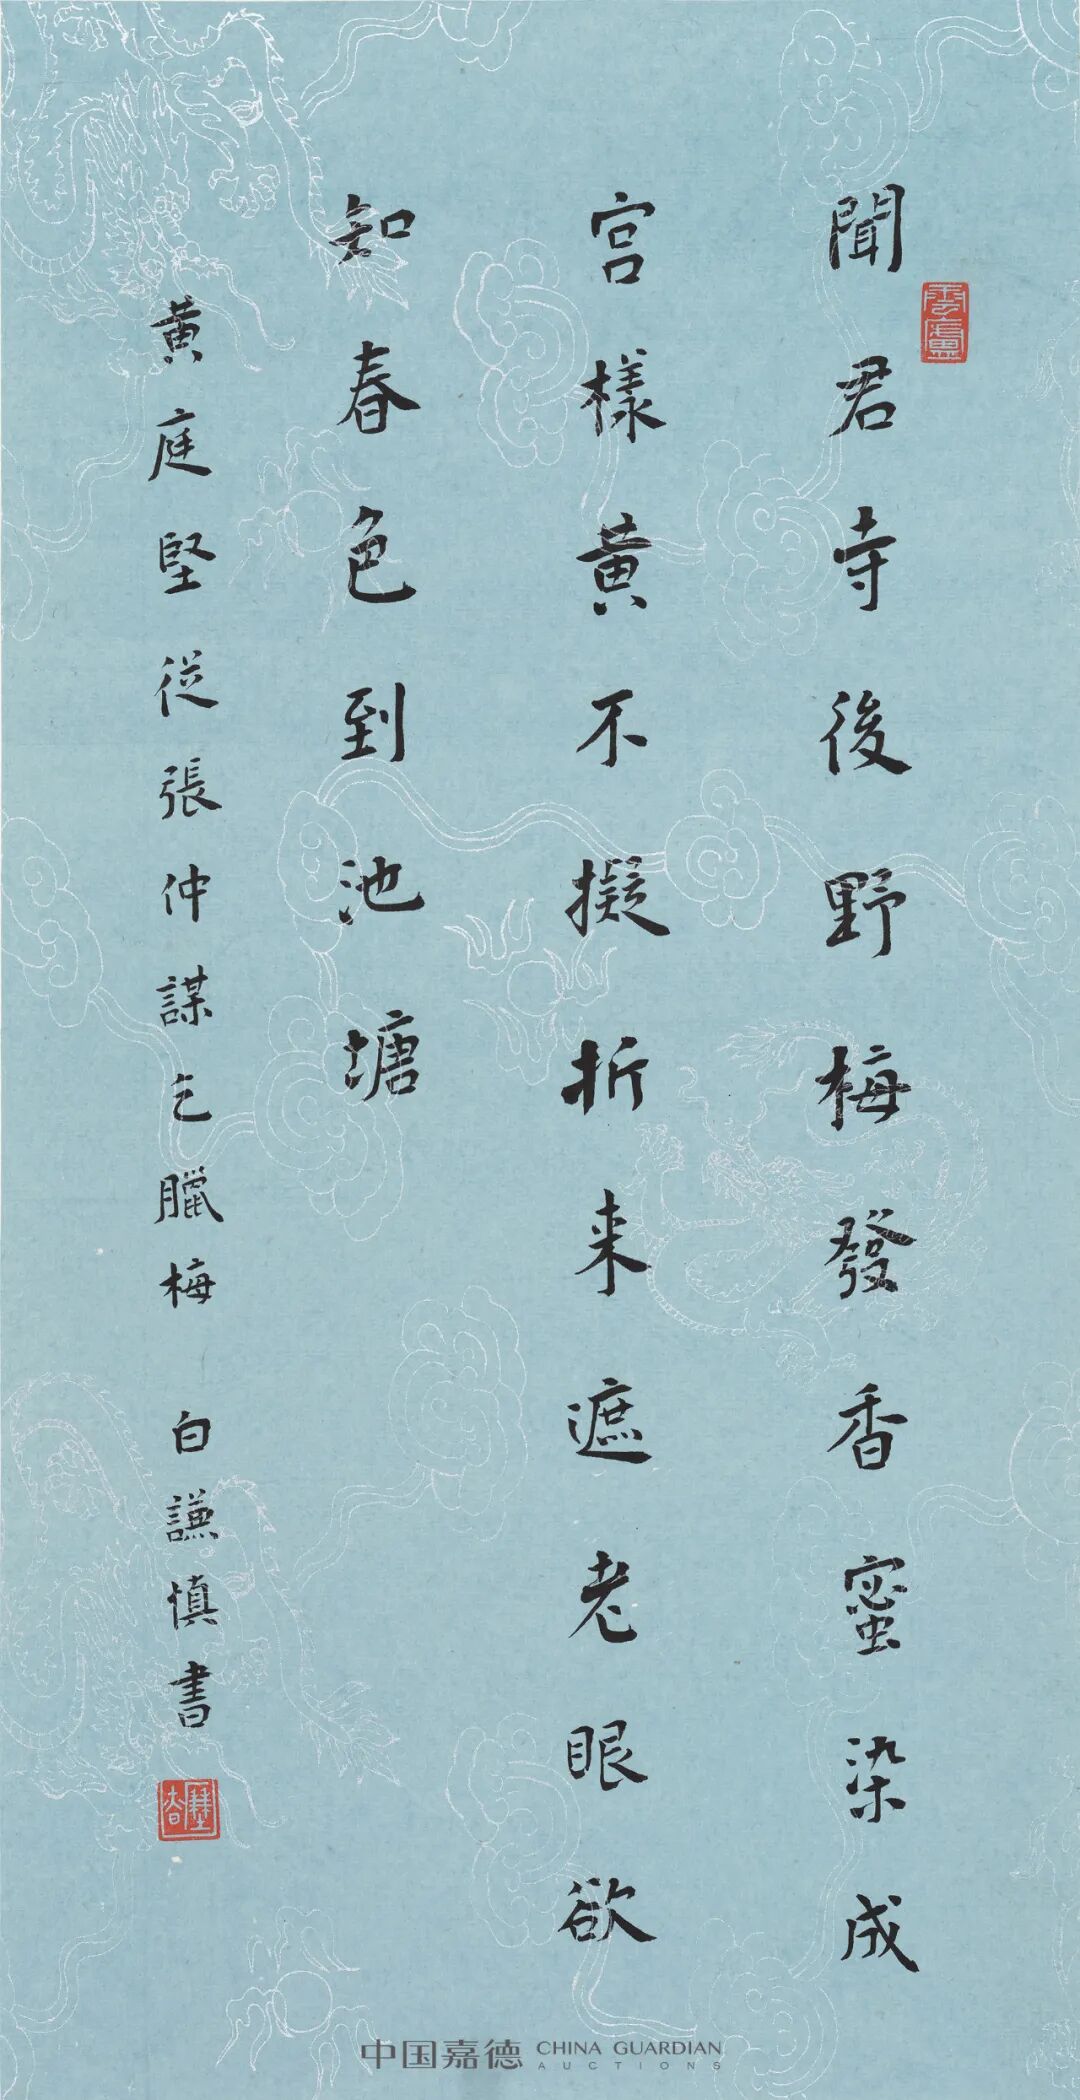 聞君寺後野梅發香蜜染成
宮樣黃不擬折来遮老眼欲
知春色到池塘
黃庭堅從張仲謀乞臘梅 白謙慎書
中国嘉德 CHINA GUARDIAN
AUCTIONS